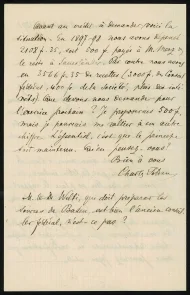 Quant au crédit à demander, voici la
situation. En 1897-98 nous avons dépensé
2108 f. 25, soit 500 f. payés à M. et
le reste à . En outre nous avons
en 3566 f. 35 de recettes (3000 f. du Conseil
fédéral, 400 f. de la Société, plus les inté-
rêts). Que devons-nous demander pour
l'exercice prochain ? Je proposerais 500 f.
mais je pourrais me rallier à un autre
chiffre. L'essentiel, c'est que le principe
soit maintenu. Qu'en pensez-vous ?
Bien à vous
Charles
M. de W. de Witt, qui doit préparer les
de Baden, est bien l'ancien conseil-
ler fédéral, n'est-ce pas ?